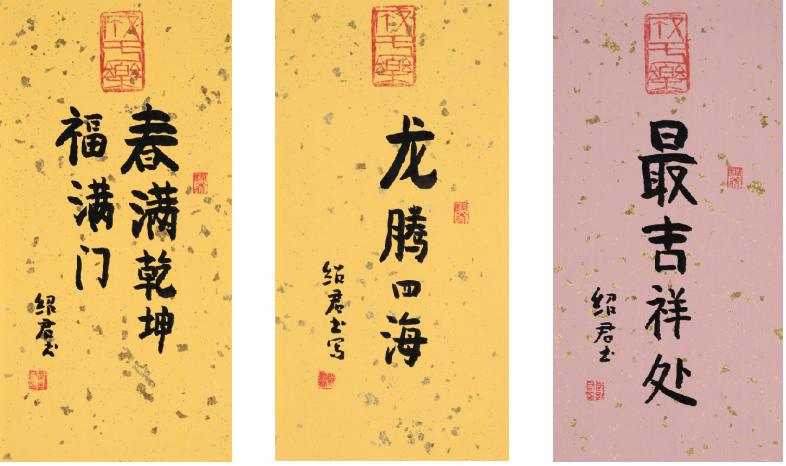 春满乾坤
福满门
绍君书
龙腾四海
绍君书写
最吉祥处
绍君书